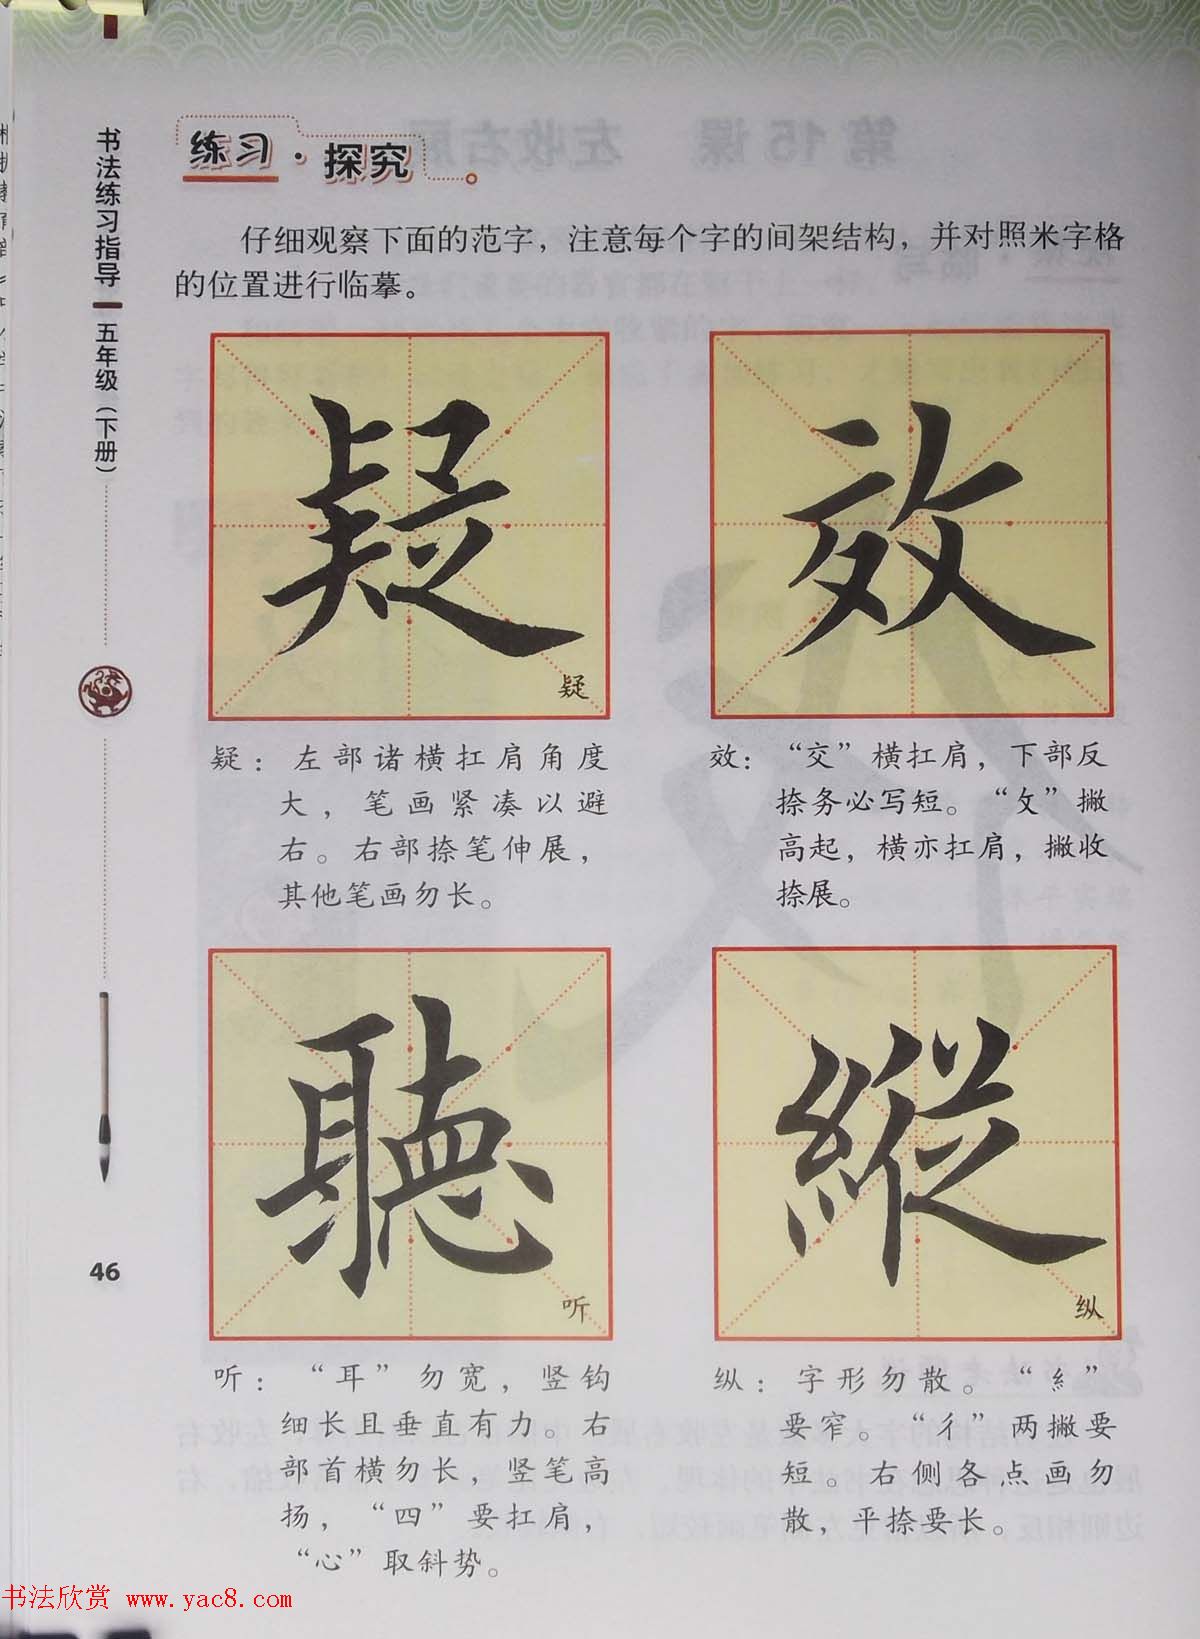 书法练习指导 五年级（下册）
练习·探究
仔细观察下面的范字，注意每个字的间架结构，并对照米字格
的位置进行临摹。
疑
疑
效
疑：左部诸横扛肩角度
大，笔画紧凑以避
右。右部捺笔伸展，
其他笔画勿长。
效：“交”横扛肩，下部反
捺务必写短。“攵”撇
高起，横亦扛肩，撇收
捺展。
聽
听
縱
纵
听：“耳”勿宽，竖钩
细长且垂直有力。右
部首横勿长，竖笔高
扬，“四”要扛肩，
“心”取斜势。
纵：字形勿散。“糹”
要窄。“彳”两撇要
短。右侧各点画勿
散，平捺要长。
46
书法欣赏 www.yac8.com